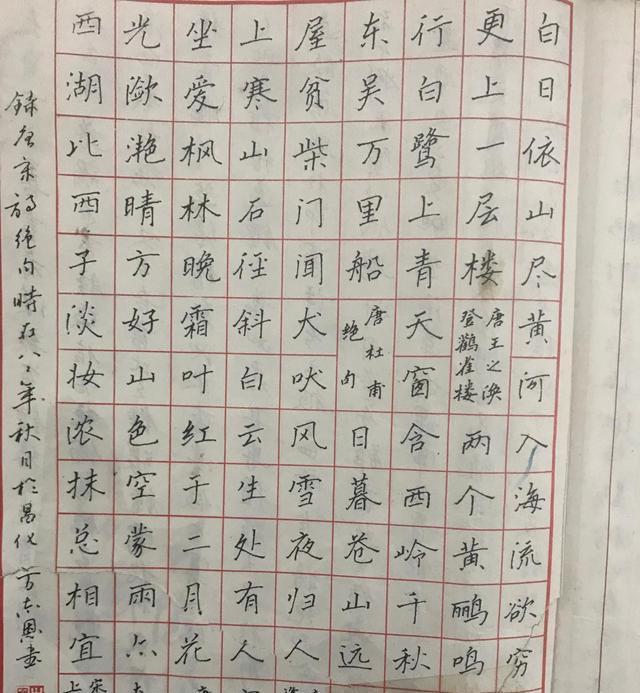 白日依山尽黄河入海流欲穷
更上一层楼
唐王之涣
登鹳雀楼
两个黄鹂鸣
行白鹭上青天窗含西岭千秋
东吴万里船
唐杜甫
绝句
日暮苍山远
屋贫柴门闻犬吠风雪夜归人
上寒山石径斜白云生处有人
坐爱枫林晚霜叶红于二月花
光潋滟晴方好山色空蒙雨亦
西湖比西子淡妆浓抹总相宜
录唐宋诗绝句時在八二年秋月於昌仪